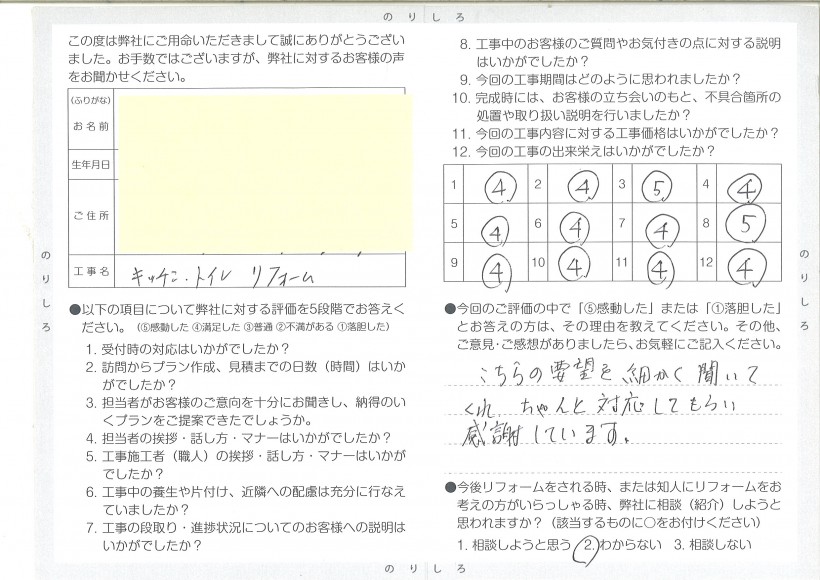 のりしろ
この度は弊社にご用命いただきまして誠にありがとうござい
ました。お手数ではございますが、弊社に対するお客様の声
をお聞かせください。
(ふりがな)
お名前
生年月日
ご住所
工事名 キッチン・トイレ リフォーム
●以下の項目について弊社に対する評価を5段階でお答えく
ださい。（⑤感動した ④満足した ③普通 ②不満がある ①落胆した）
1. 受付時の対応はいかがでしたか？
2. 訪問からプラン作成、見積までの日数（時間）はいか
がでしたか？
3. 担当者がお客様のご意向を十分にお聞きし、納得のい
くプランをご提案できたでしょうか。
4. 担当者の挨拶・話し方・マナーはいかがでしたか？
5. 工事施工者（職人）の挨拶・話し方・マナーはいかが
でしたか？
6. 工事中の養生や片付け、近隣への配慮は充分に行なえ
ていましたか？
7. 工事の段取り・進捗状況についてのお客様への説明は
いかがでしたか？
8. 工事中のお客様のご質問やお気付きの点に対する説明
はいかがでしたか？
9. 今回の工事期間はどのように思われましたか？
10. 完成時には、お客様の立ち会いのもと、不具合箇所の
処置や取り扱い説明を行いましたか？
11. 今回の工事内容に対する工事価格はいかがでしたか？
12. 今回の工事の出来栄えはいかがでしたか？
1 ④ 2 ④ 3 ⑤ 4 ④
5 ④ 6 ④ 7 ④ 8 ⑤
9 ④ 10 ④ 11 ④ 12 ④
●今回のご評価の中で「⑤感動した」または「①落胆した」
とお答えの方は、その理由を教えてください。その他、
ご意見・ご感想がありましたら、お気軽にご記入ください。
こちらの要望を細かく聞いて
くれ、ちゃんと対応してもらい
感謝しています。
●今後リフォームをされる時、または知人にリフォームをお
考えの方がいらっしゃる時、弊社に相談（紹介）しようと
思われますか？（該当するものに○をお付けください）
1. 相談しようと思う 2. わからない 3. 相談しない
のりしろ
のりしろ
のりしろ